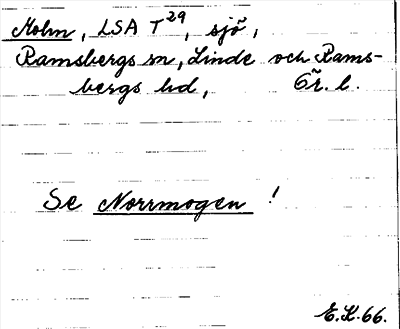 Molm, LSA T29, sjö,
Ramsbergs sn, Linde och Rams-
bergs hd, Ör. l.
Se Norrmogen!
E.K. 66.